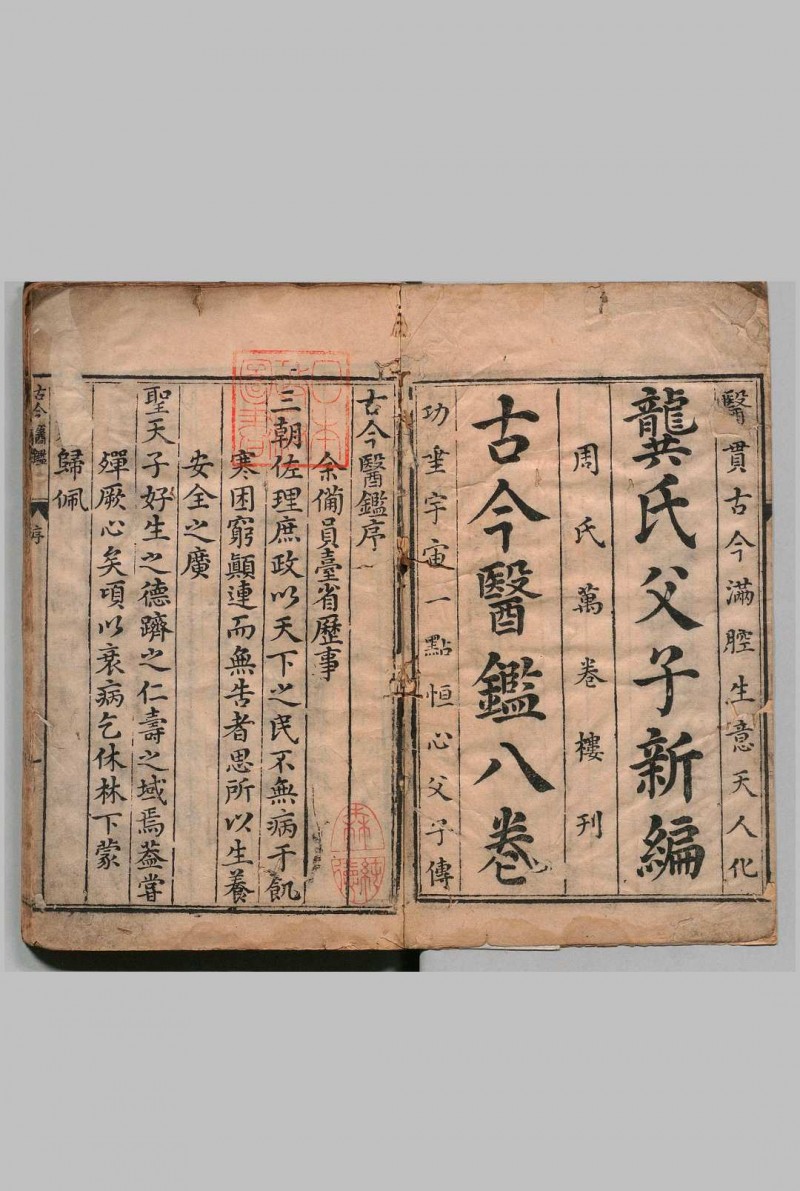 醫貫古今滿腔生意天人化
龔氏父子新編
周氏萬卷樓刊
古今醫鑑八卷
功垂宇宙一點恒心父子傳
古今醫鑑序
余備員臺省歷事
三朝佐理庶政以天下之民不無病于飢
寒困窮顛連而無告者思所以生養
安全之廣
聖天子好生之德躋之仁壽之域焉葢嘗
殫厥心矣項以衰病乞休林下蒙
歸佩
古今醫鑑
序
一